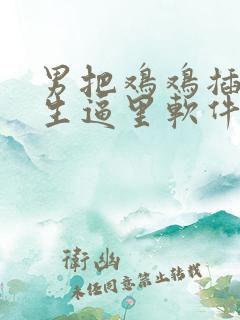 男把鸡鸡插
生逼里软件
衛幽
未经同意禁止转载